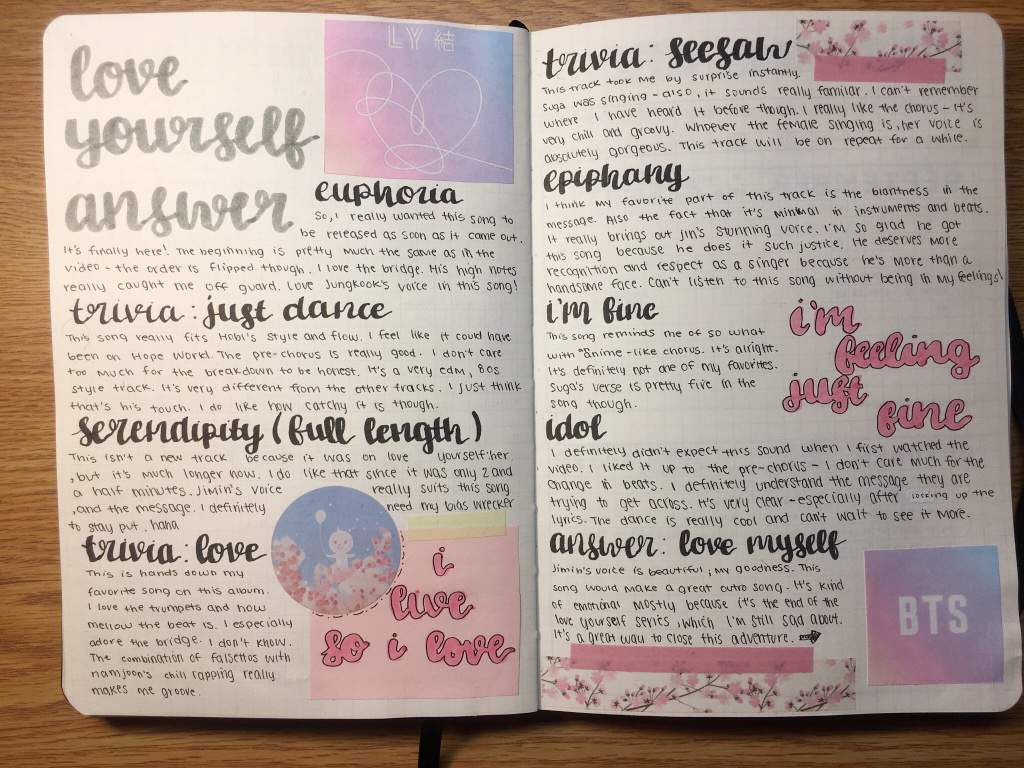 love
yourself
answer
LY 結
euphoria
So, I really wanted this song to
be released as soon as it came out.
It's finally here! The beginning is pretty much the same as in the
video - the order is flipped though. I love the bridge. His high notes
really caught me off guard. Love Jungkook's voice in this song!
trivia: just dance
This song really fits Hobi's style and flow. I feel like it could have
been on Hope World. The pre-chorus is really good. I don't care
too much for the breakdown to be honest. It's a very edm, 80s
style track. It's very different from the other tracks. I just think
that's his touch. I do like how catchy it is though.
serendipity (full length)
This isn't a new track because it was on love yourself:her
, but it's much longer now. I do like that since it was only 2 and
a half minutes. Jimin's voice really suits this song
, and the message. I definitely need my bias wrecker
to stay put, haha
trivia: love
This is hands down my
favorite song on this album.
I love the trumpets and how
mellow the beat is. I especially
adore the bridge. I don't know.
The combination of falsettos with
namjoon's chill rapping really
makes me groove.
i
live
so i love
trivia: seesaw
This track took me by surprise instantly.
Suga was singing - also, it sounds really familiar. I can't remember
where I have heard it before though. I really like the chorus - it's
very chill and groovy. Whoever the female singing is, her voice is
absolutely gorgeous. This track will be on repeat for a while.
epiphany
I think my favorite part of this track is the blantness in the
message. Also the fact that it's minimal in instruments and beats.
It really brings out Jin's stunning voice. I'm so glad he got
this song because he does it such justice. He deserves more
recognition and respect as a singer because he's more than a
handsome face. Can't listen to this song without being in my feelings!
i'm fine
This song reminds me of so what
with anime-like chorus. It's alright.
It's definitely not one of my favorites.
Suga's verse is pretty fire in the
song though.
i'm
feeling
just
fine
idol
I definitely didn't expect this sound when I first watched the
video. I liked it up to the pre-chorus - I don't care much for the
change in beats. I definitely understand the message they are
trying to get across. It's very clear - especially after looking up the
lyrics. The dance is really cool and can't wait to see it more.
answer: love myself
Jimin's voice is beautiful, my goodness. This
song would make a great outro song. It's kind
of emotional mostly because it's the end of the
love yourself series, which I'm still sad about.
It's a great way to close this adventure.
BTS